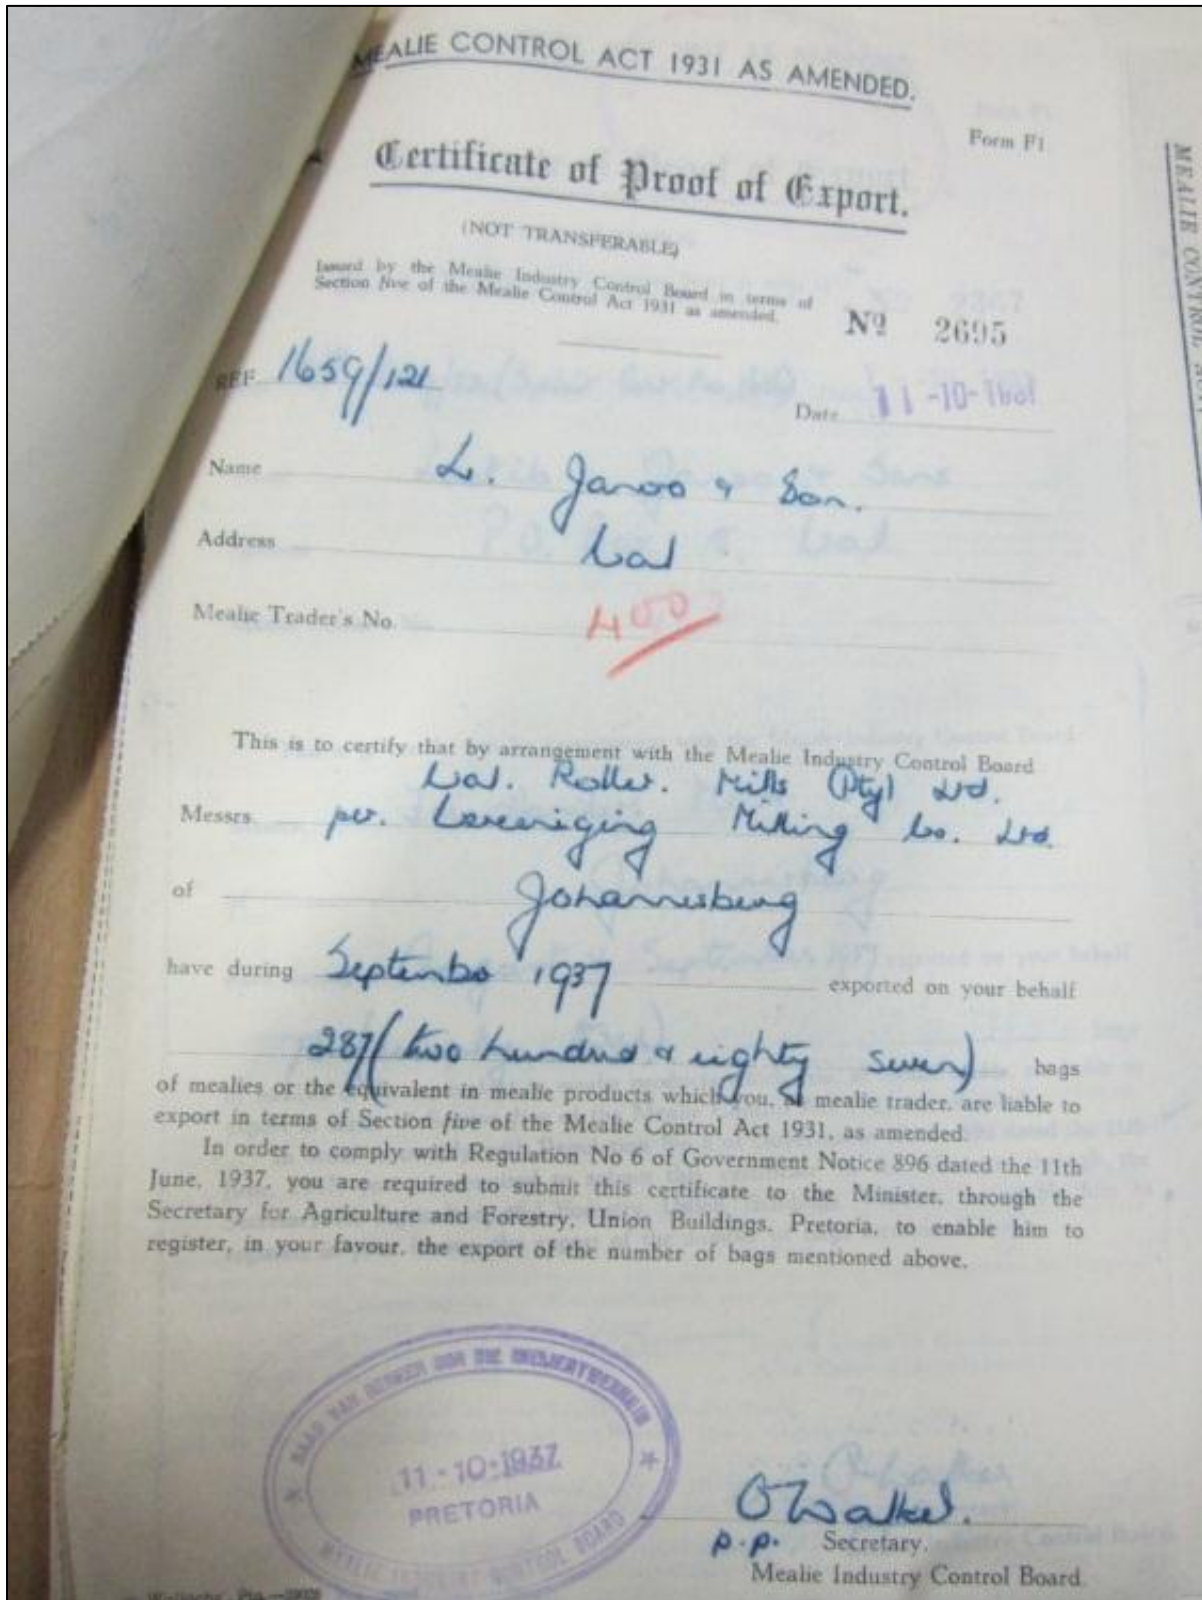 MEALIE CONTROL ACT 1931 AS AMENDED.
Form F1
Certificate of Proof of Export.
(NOT TRANSFERABLE)
Issued by the Mealie Industry Control Board in terms of
Section five of the Mealie Control Act 1931 as amended.
Nº 2695
REF. 1659/121
Date 11-10-
Name L. & Son.
Address
Mealie Trader's No. 400
This is to certify that by arrangement with the Mealie Industry Control Board
Roller. Mills (Pty) Ltd.
Messrs. per. Vereeniging Milling Co. Ltd.
of Johannesburg
have during September 1937 exported on your behalf
287 (two hundred & eighty seven) bags
of mealies or the equivalent in mealie products which you, a mealie trader, are liable to
export in terms of Section five of the Mealie Control Act 1931, as amended.
In order to comply with Regulation No 6 of Government Notice 896 dated the 11th
June, 1937, you are required to submit this certificate to the Minister, through the
Secretary for Agriculture and Forestry, Union Buildings, Pretoria, to enable him to
register, in your favour, the export of the number of bags mentioned above.
RAAD VAN BEHEER OOR DIE
11-10-1937
PRETORIA
MEALIE INDUSTRY CONTROL BOARD
O Walker.
p.p. Secretary.
Mealie Industry Control Board.
MEALIE CONTROL